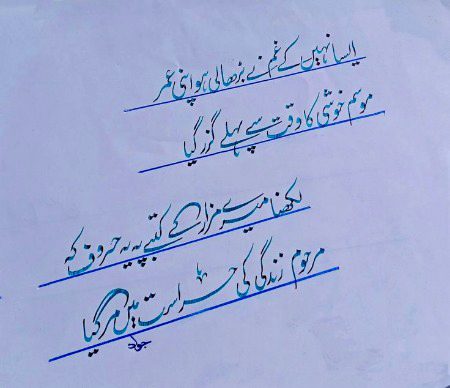 ایسا نہیں کے غم نے بڑھا لی ہو اپنی عمر
موسم خوشی کا وقت سے پہلے گزر گیا
لکھنا میرے مزار کے کتبے پہ یہ حروف کہ
مرحوم زندگی کی حراست میں مر گیا
جواد